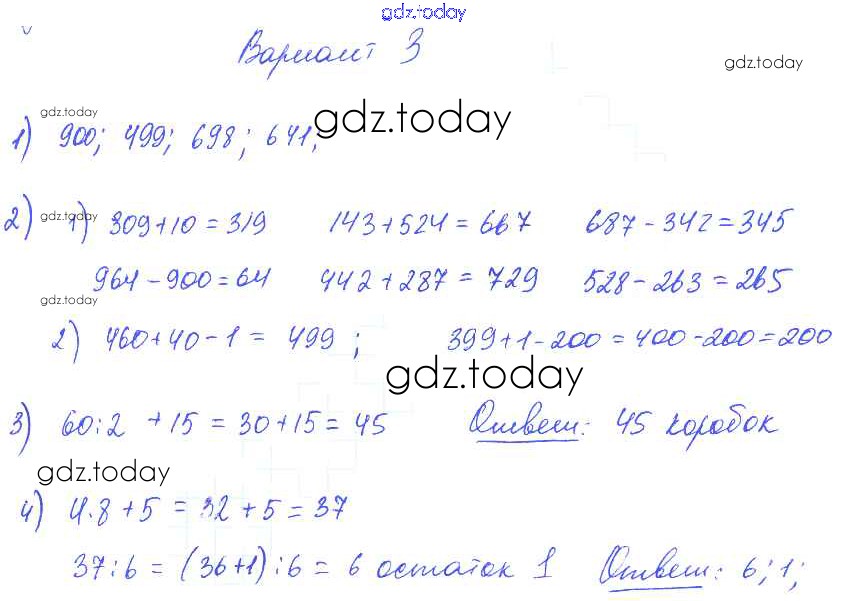 gdz.today
Вариант 3
gdz.today
gdz.today
1) 900; 499; 698; 641; gdz.today
2) gdz.today 1) 309+10=319 143+524=667 687-342=345
964-900=64 442+287=729 528-263=265
gdz.today
2) 460+40-1= 499; 399+1-200=400-200=200
gdz.today
3) 60:2 +15=30+15=45 Ответ: 45 коробок
gdz.today
4) 4.8+5=32+5=37
37:6=(36+1):6=6 остаток 1 Ответ: 6; 1;